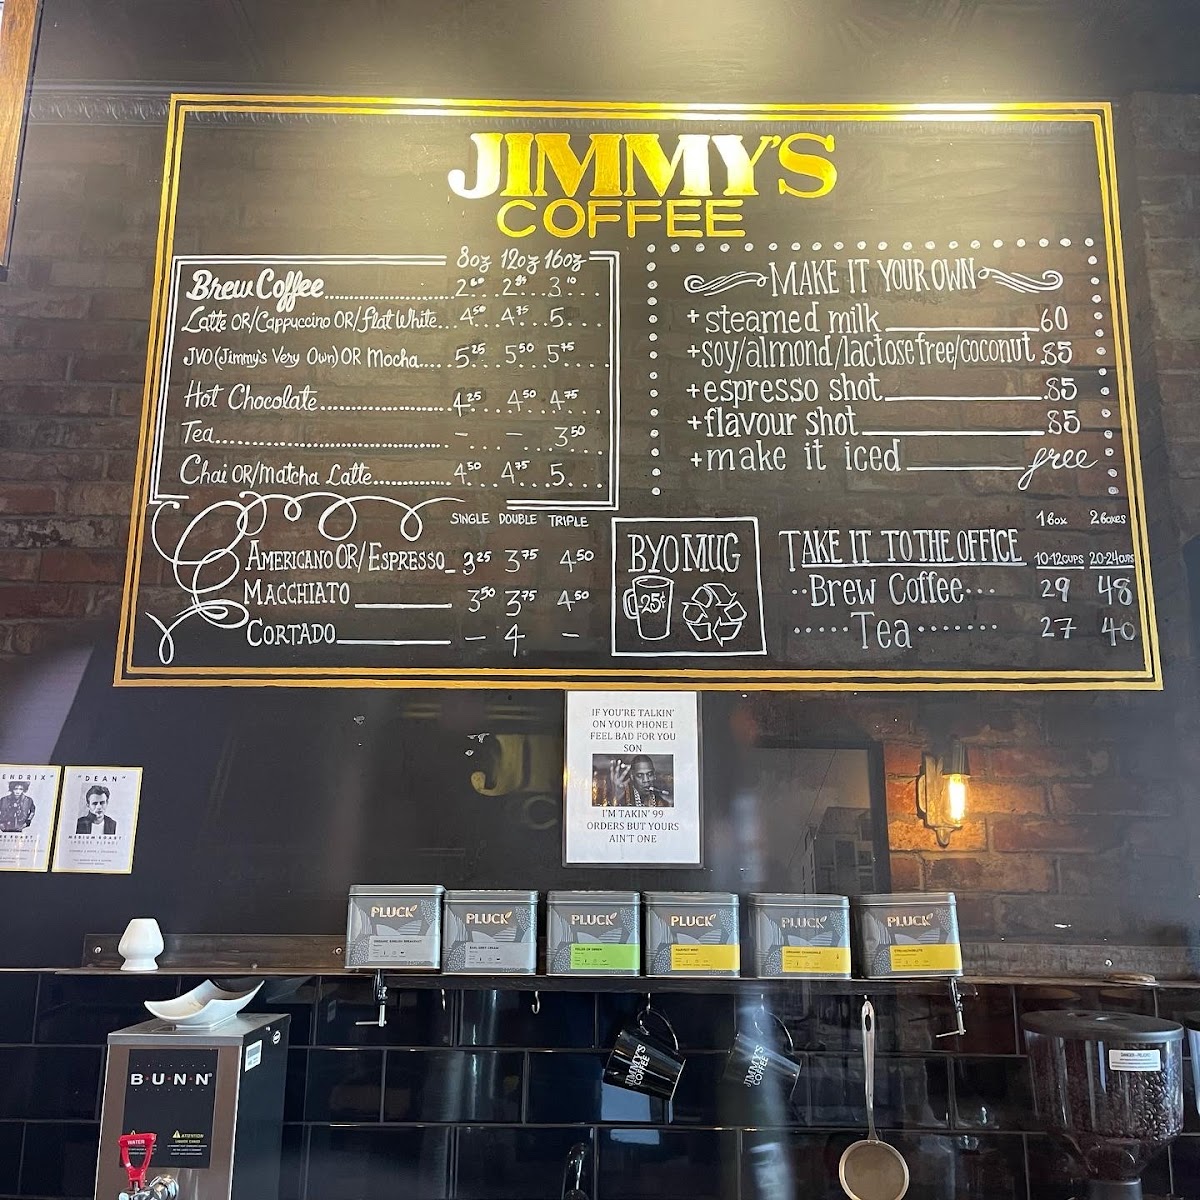 JIMMY'S
COFFEE
8oz 12oz 16oz
Brew Coffee 2.60 2.85 3.10
Latte OR/Cappuccino OR/flat White 4.50 4.75 5
JVO (Jimmy's Very Own) OR Mocha 5.25 5.50 5.75
Hot Chocolate 4.25 4.50 4.75
Tea - - 3.50
Chai OR/Matcha Latte 4.50 4.75 5
SINGLE DOUBLE TRIPLE
AMERICANO OR/ESPRESSO 3.25 3.75 4.50
MACCHIATO 3.50 3.75 4.50
CORTADO - 4 -
MAKE IT YOUR OWN
+ steamed milk .60
+ soy/almond/lactose free/coconut .85
+ espresso shot .85
+ flavour shot .85
+ make it iced free
BYOMUG
-25¢
1 Box 2 Boxes
TAKE IT TO THE OFFICE 10-12 CUPS 20-24 CUPS
Brew Coffee 29 48
Tea 27 40
IF YOU'RE TALKIN'
ON YOUR PHONE I
FEEL BAD FOR YOU
SON
I'M TAKIN' 99
ORDERS BUT YOURS
AIN'T ONE
ENDRIX"
"DEAN"
MEDIUM ROAST
(HOUSE BLEND)
PLUCK
ORGANIC ENGLISH BREAKFAST
PLUCK
EARL GREY CREAM
PLUCK
FIELDS OF GREEN
PLUCK
HARVEST MINT
PLUCK
ORGANIC CHAMOMILE
PLUCK
JIMMY'S
COFFEE
JIMMY'S
COFFEE
BUNN
WATER
ATTENTION
DANGER - PELIGRO